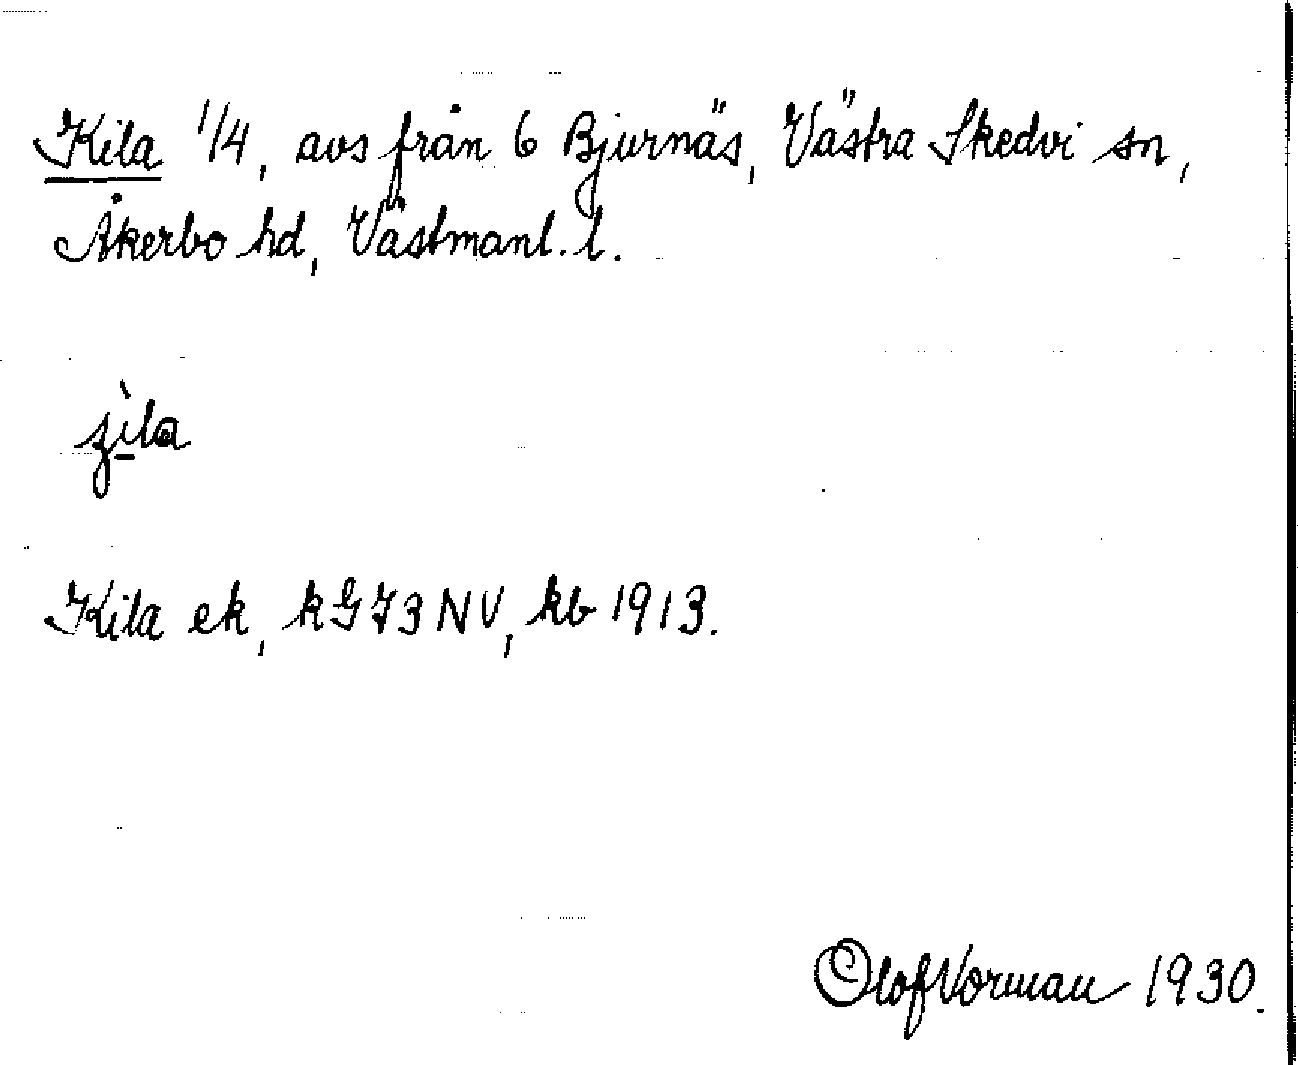 Kila 1/4, avs från 6 Bjurnäs, Västra Skedvi sn,
Åkerbo hd, Västmanl. l.
Kila ek, kG73NV, kb 1913.
Olof Vorman 1930.